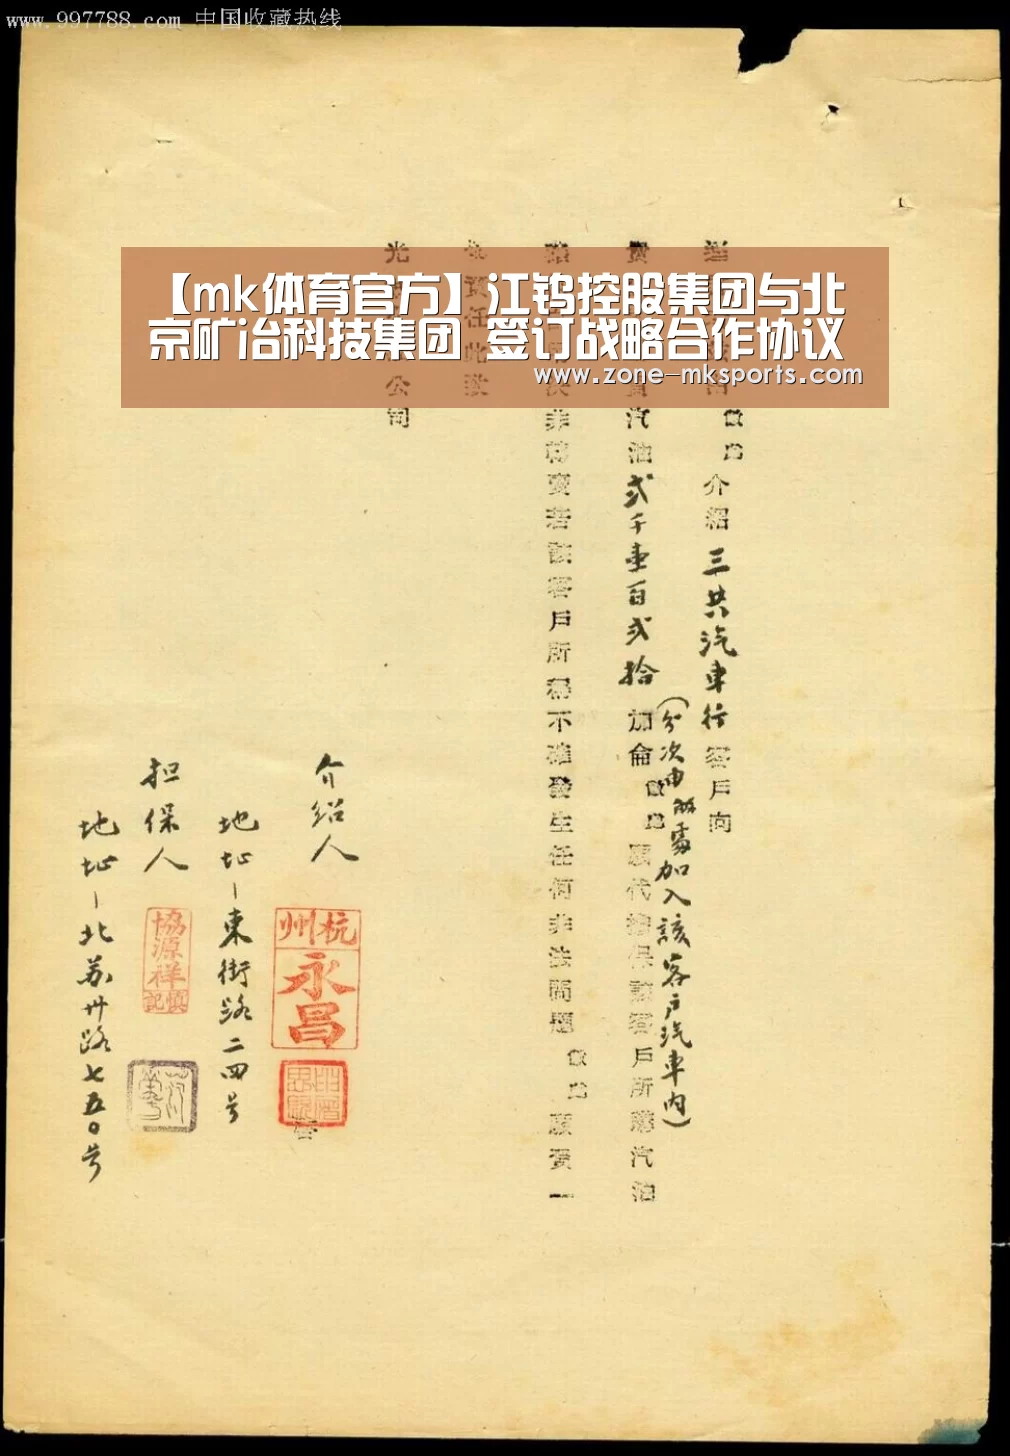 www.997788.com 中国收藏热线
【mk体育官方】江钨控股集团与北
京矿冶科技集团 签订战略合作协议
www.zone-mksports.com
介紹三共汽車行客戶向
(分次由
處加入該客户汽車内)
汽油弍千壹百弍拾加侖
願代擔保該客戶所購汽油
非轉賣若該客戶所稱不確發生任何非法問題
願負一
責任此致
光
公司
介绍人
杭州
永昌
地址-東街路二四号
担保人
協源祥
慎記
地址-北苏州路七五〇号